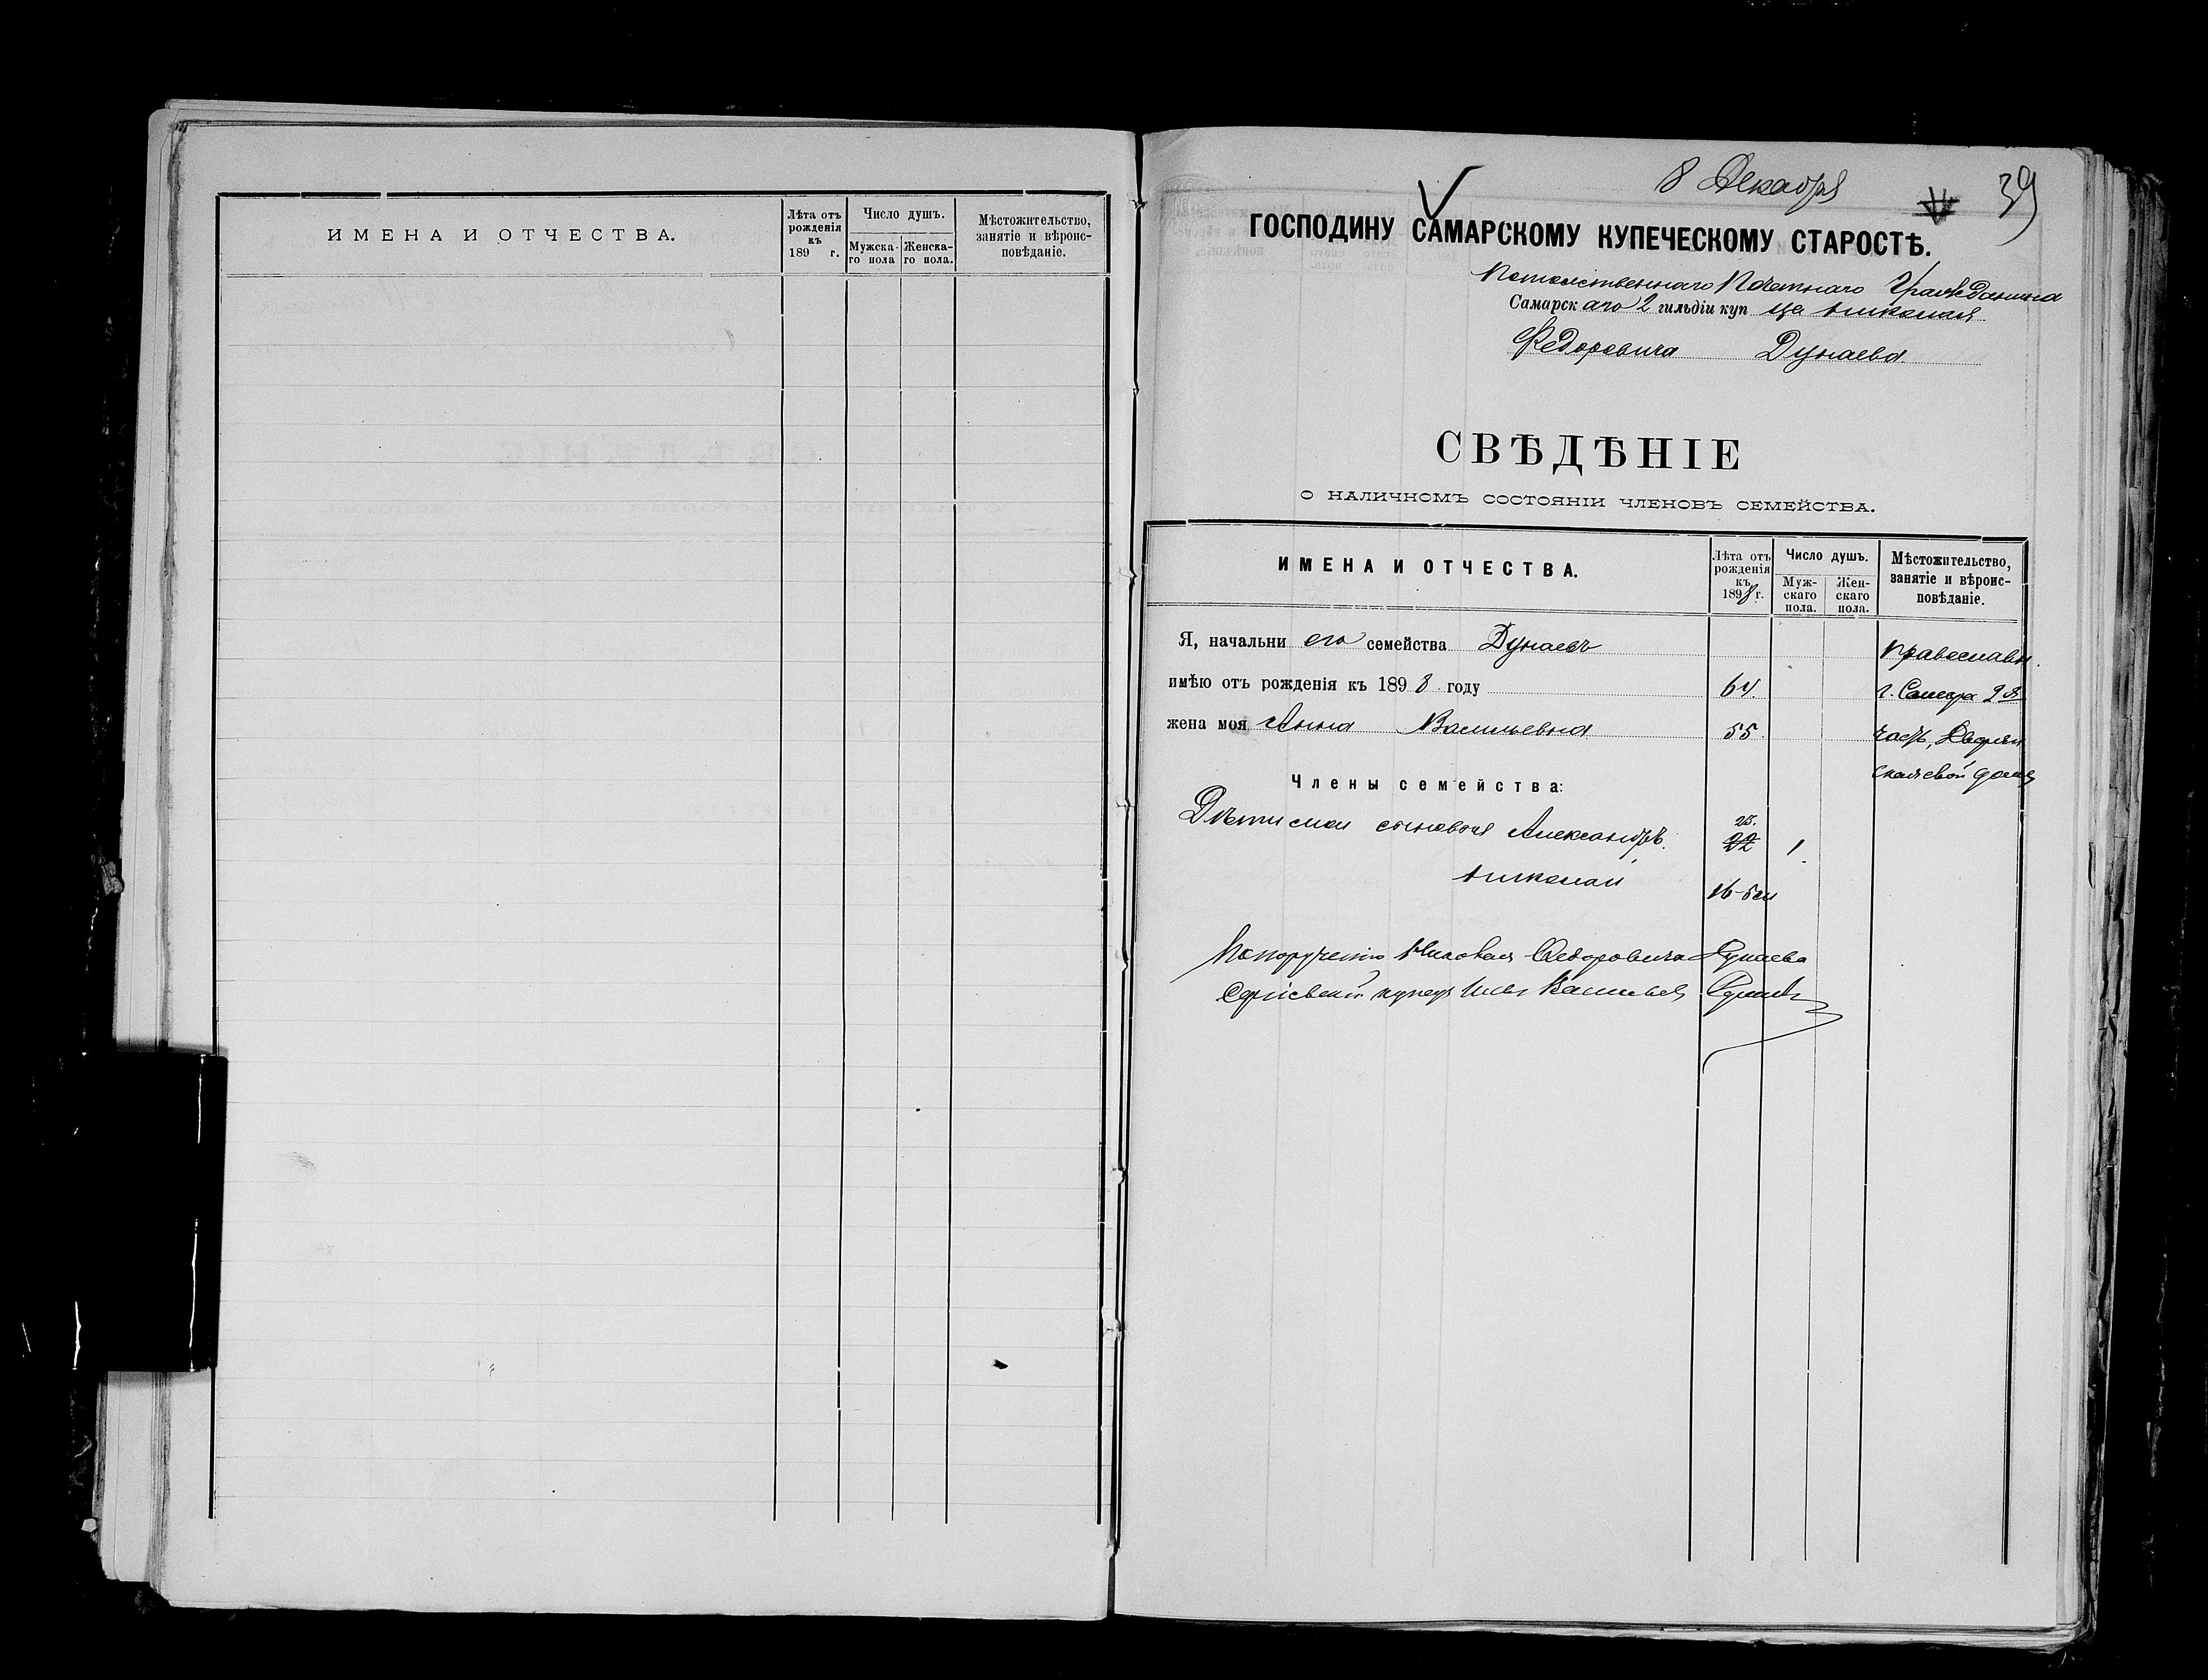 ИМЕНА И ОТЧЕСТВА.
Лѣта отъ рожденія къ 189 г.
Число душъ.
Мужска-го пола
Женска-го пола.
Мѣстожительство, занятіе и вѣроис-повѣданіе.
8 Декабря
39
ГОСПОДИНУ САМАРСКОМУ КУПЕЧЕСКОМУ СТАРОСТѢ.
Потомственнаго Почетнаго Гражданина
Самарскаго 2 гильдіи купца Николая
Федоровича Дунаева.
СВѢДѢНІЕ
О НАЛИЧНОМЪ СОСТОЯНІИ ЧЛЕНОВЪ СЕМЕЙСТВА.
ИМЕНА И ОТЧЕСТВА.
Лѣта отъ рожденія къ 1898 г.
Число душъ.
Муж-скаго пола.
Жен-скаго пола.
Мѣстожительство, занятіе и вѣроис-повѣданіе.
Я, начальни его семейства Дунаевъ православн.
имѣю отъ рожденія къ 1898 году 64. г. Самара 2я
жена моя Анна Васильевна 55. часть,
Члены семейства:
Дѣти мои сыновья Александръ. 22 1
Николай 16
По порученію Николая Федоровича Дунаева
купецъ Васильевъ